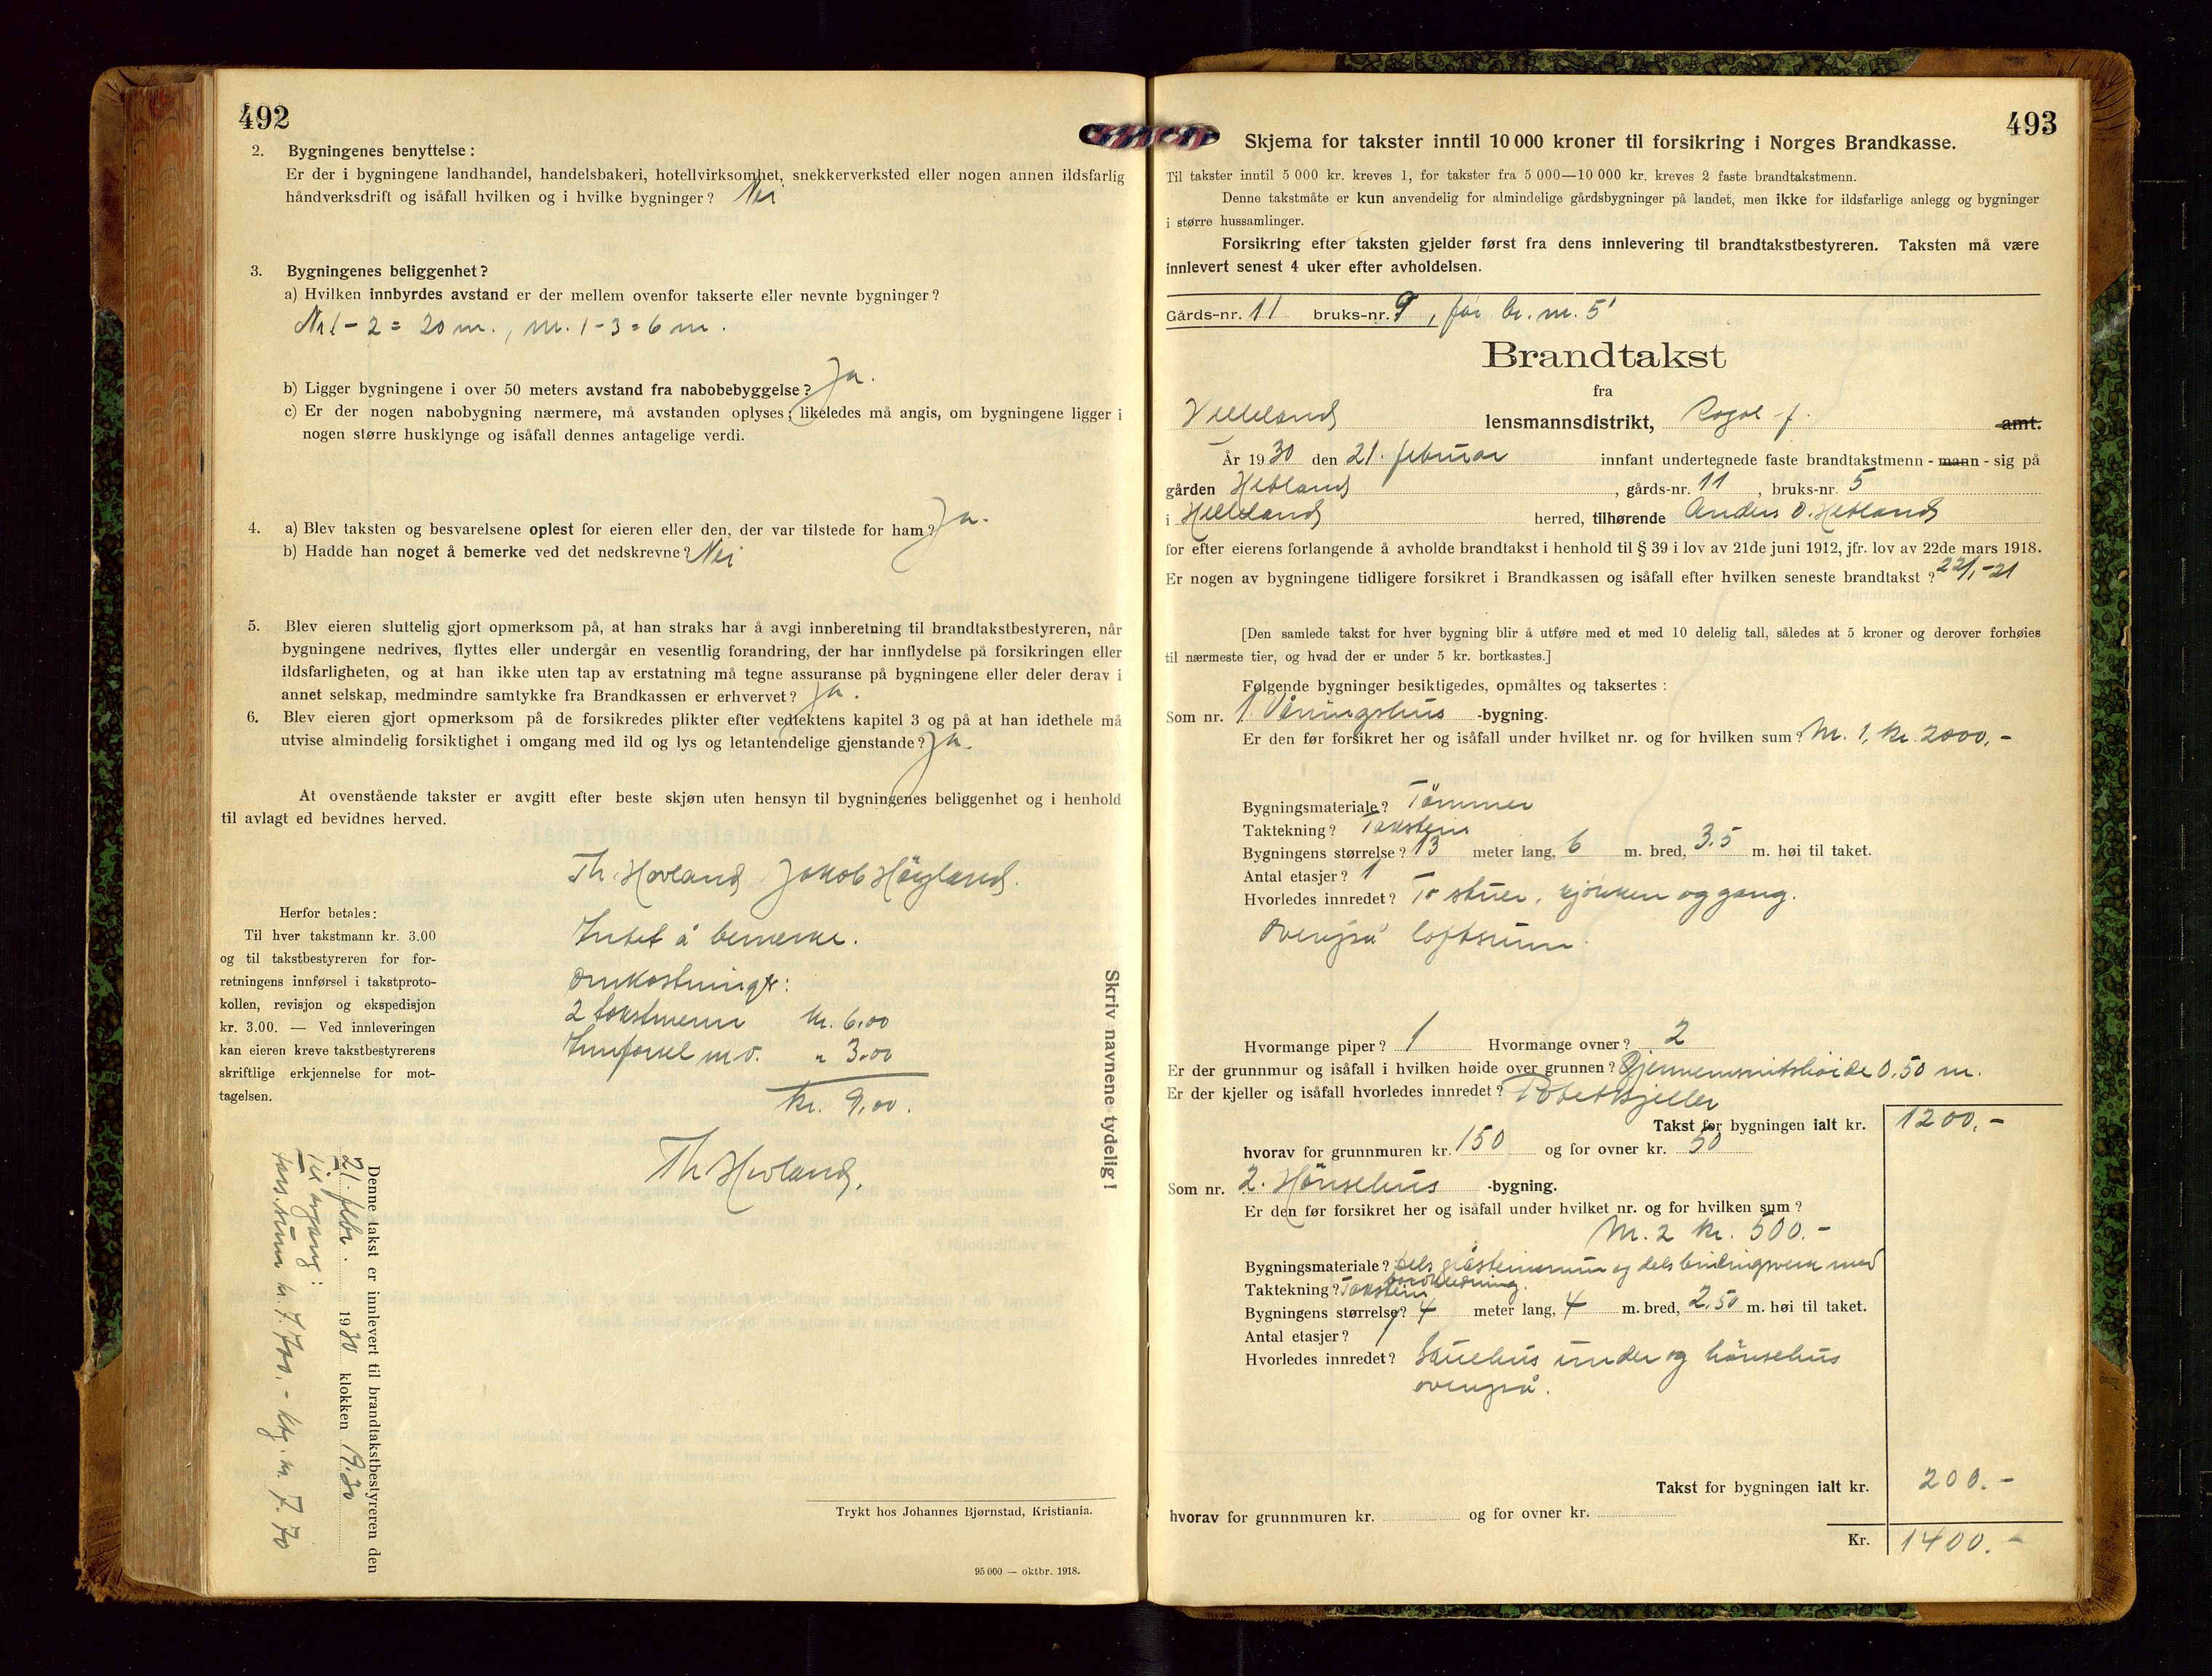 492
2. Bygningenes benyttelse:
Er der i bygningene landhandel, handelsbakeri, hotellvirksomhet, snekkerverksted eller nogen annen ildsfarlig
håndverksdrift og isåfall hvilken og i hvilke bygninger? Nei
3. Bygningenes beliggenhet?
a) Hvilken innbyrdes avstand er der mellem ovenfor takserte eller nevnte bygninger?
Nr 1 - 2 = 20 m., nr. 1 - 3 = 6 m.
b) Ligger bygningene i over 50 meters avstand fra nabobebyggelse? Ja.
c) Er der nogen nabobygning nærmere, må avstanden oplyses; likeledes må angis, om bygningene ligger i
nogen større husklynge og isåfall dennes antagelige verdi.
4. a) Blev taksten og besvarelsene oplest for eieren eller den, der var tilstede for ham? Ja.
b) Hadde han noget å bemerke ved det nedskrevne? Nei
5. Blev eieren sluttelig gjort opmerksom på, at han straks har å avgi innberetning til brandtakstbestyreren, når
bygningene nedrives, flyttes eller undergår en vesentlig forandring, der har innflydelse på forsikringen eller
ildsfarligheten, og at han ikke uten tap av erstatning må tegne assuranse på bygningene eller deler derav i
annet selskap, medmindre samtykke fra Brandkassen er erhvervet? Ja.
6. Blev eieren gjort opmerksom på de forsikredes plikter efter vedtektens kapitel 3 og på at han idethele må
utvise almindelig forsiktighet i omgang med ild og lys og letantendelige gjenstande? Ja.
At ovenstående takster er avgitt efter beste skjøn uten hensyn til bygningenes beliggenhet og i henhold
til avlagt ed bevidnes herved.
Th. Hovland Jakob Höyland.
Herfor betales:
Til hver takstmann kr. 3.00
og til takstbestyreren for for-
retningens innførsel i takstproto-
kollen, revisjon og ekspedisjon
kr. 3.00. — Ved innleveringen
kan eieren kreve takstbestyrerens
skriftlige erkjennelse for mot-
tagelsen.
Intet å bemerke.
Omkostninger:
2 takstmenn kr. 6.00
Innførsel m.v. " 3.00
kr. 9.00.
Th Hovland.
Skriv navnene tydelig!
Denne takst er innlevert til brandtakstbestyreren den
21. febr. 1930 klokken 9.30
Tilgang:
fors.sum kr. 7.700.- ktg. kr. 7.70
Trykt hos Johannes Bjørnstad, Kristiania.
95 000 — oktbr. 1918.
493
Skjema for takster inntil 10 000 kroner til forsikring i Norges Brandkasse.
Til takster inntil 5 000 kr. kreves 1, for takster fra 5 000—10 000 kr. kreves 2 faste brandtakstmenn.
Denne takstmåte er kun anvendelig for almindelige gårdsbygninger på landet, men ikke for ildsfarlige anlegg og bygninger
i større hussamlinger.
Forsikring efter taksten gjelder først fra dens innlevering til brandtakstbestyreren. Taksten må være
innlevert senest 4 uker efter avholdelsen.
Gårds-nr. 11 bruks-nr. 9, før br. nr. 5
Brandtakst
fra
Helleland lensmannsdistrikt, Rogal. f. amt.
År 1930 den 21. februar innfant undertegnede faste brandtakstmenn - mann - sig på
gården Hetland, gårds-nr. 11, bruks-nr. 5
i Helleland herred, tilhørende Anders O. Hetland
for efter eierens forlangende å avholde brandtakst i henhold til § 39 i lov av 21de juni 1912, jfr. lov av 22de mars 1918.
Er nogen av bygningene tidligere forsikret i Brandkassen og isåfall efter hvilken seneste brandtakst? 22/1 -21
[Den samlede takst for hver bygning blir å utføre med et med 10 delelig tall, således at 5 kroner og derover forhøies
til nærmeste tier, og hvad der er under 5 kr. bortkastes.]
Følgende bygninger besiktigedes, opmåltes og taksertes:
Som nr. 1. Våningshus -bygning.
Er den før forsikret her og isåfall under hvilket nr. og for hvilken sum? Nr. 1, kr. 2000,-
Bygningsmateriale? Tömmer
Taktekning? Takstein
Bygningens størrelse? 13 meter lang, 6 m. bred, 3.5 m. høi til taket.
Antal etasjer? 1
Hvorledes innredet? To stuer, kjökken og gang.
Ovenpå loftsrum.
Hvormange piper? 1 Hvormange ovner? 2
Er der grunnmur og isåfall i hvilken høide over grunnen? Gjennemsnitshöide 0,50 m.
Er der kjeller og isåfall hvorledes innredet? Potetkjeller
Takst for bygningen ialt kr. 1200.-
hvorav for grunnmuren kr. 150 og for ovner kr. 50
Som nr. 2. Hönsehus -bygning.
Er den før forsikret her og isåfall under hvilket nr. og for hvilken sum?
Nr. 2 kr. 500.-
Bygningsmateriale? Dels gråsteinsmur og dels bindingsverk med
bordkledning.
Taktekning? Takstein
Bygningens størrelse? 4 meter lang, 4 m. bred, 2,50 m. høi til taket.
Antal etasjer? 1
Hvorledes innredet? Sauehus under og hönsehus
ovenpå.
Takst for bygningen ialt kr. 200.-
hvorav for grunnmuren kr. og for ovner kr.
Kr. 1400.-